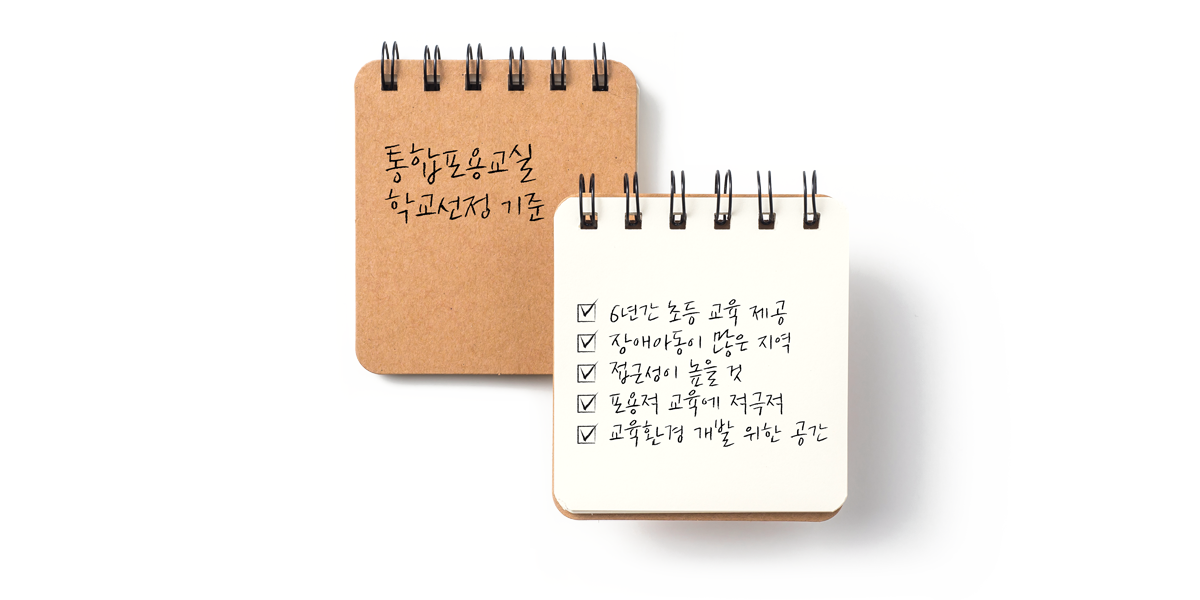 통합포용교실
학교선정 기준
6년간 초등 교육 제공
장애아동이 많은 지역
접근성이 높을 것
포용적 교육에 적극적
교육환경 개발 위한 공간